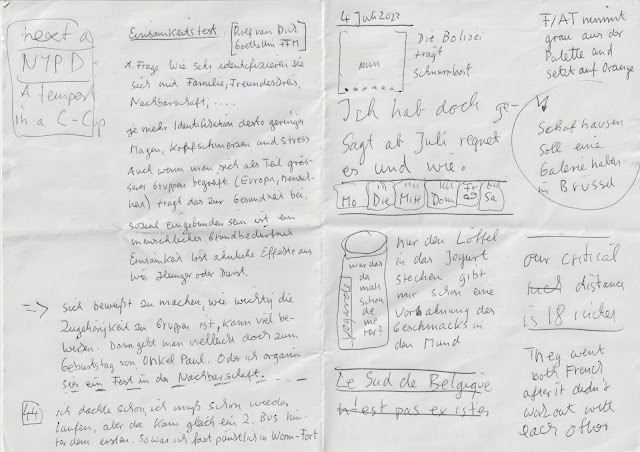 next a
NYPD -
A tempest
in a C-Cup
Einsamkeitstest.
Rolf van Dick
Goethe Uni FFM
1. Frage Wie sehr identifizieren Sie
sich mit Familie, Freundeskreis,
Nachbarschaft, ....
je mehr Identifikation desto geringer
Magen, Kopfschmerzen und Stress
Auch wenn man sich als Teil grös-
serer Gruppen begreift (Europa, Mensch-
heit) trägt das zur Gesundheit bei.
sozial eingebunden sein ist ein
menschliches Grundbedürfnis
Einsamkeit löst ähnliche Effekte aus
wie Hunger oder Durst.
=>> sich bewußt zu machen, wie wichtig die
Zugehörigkeit zu Gruppen ist, kann viel be-
wirken. Dann geht man vielleicht doch zum
Geburtstag von Onkel Paul. Oder ich organi
sier ein Fest in der Nachbarschaft. - - - -
44 ich dachte schon, ich muß schon wieder
laufen, aber da kam gleich ein 2. Bus hin-
ter dem ersten. So war ich fast pünktlich in Worm-Fort
4 Juli 2023
mun
Die Bolizei
trägt
schnurrbost
Ich hab doch ge-
sagt ab Juli regnet
es und wie.
Mo Die Mitt Donn Fr Sa
yogarole
war das
da mals
schon
de me
ter?
nur den Löffel
in das Jogurt
stecken gibt
mir schon eine
Vorahnung des
Geschmacks in
den Mund
Le Sud de Belgique
n'est pas exister
F/AT nimmt
grau aus der
Palette und
setzt auf Orange
Schafhausen
soll eine
Galerie haben
in Brüssel
our critical
distance
is 18 inches
They went
both French
after it didn't
work out with
each other